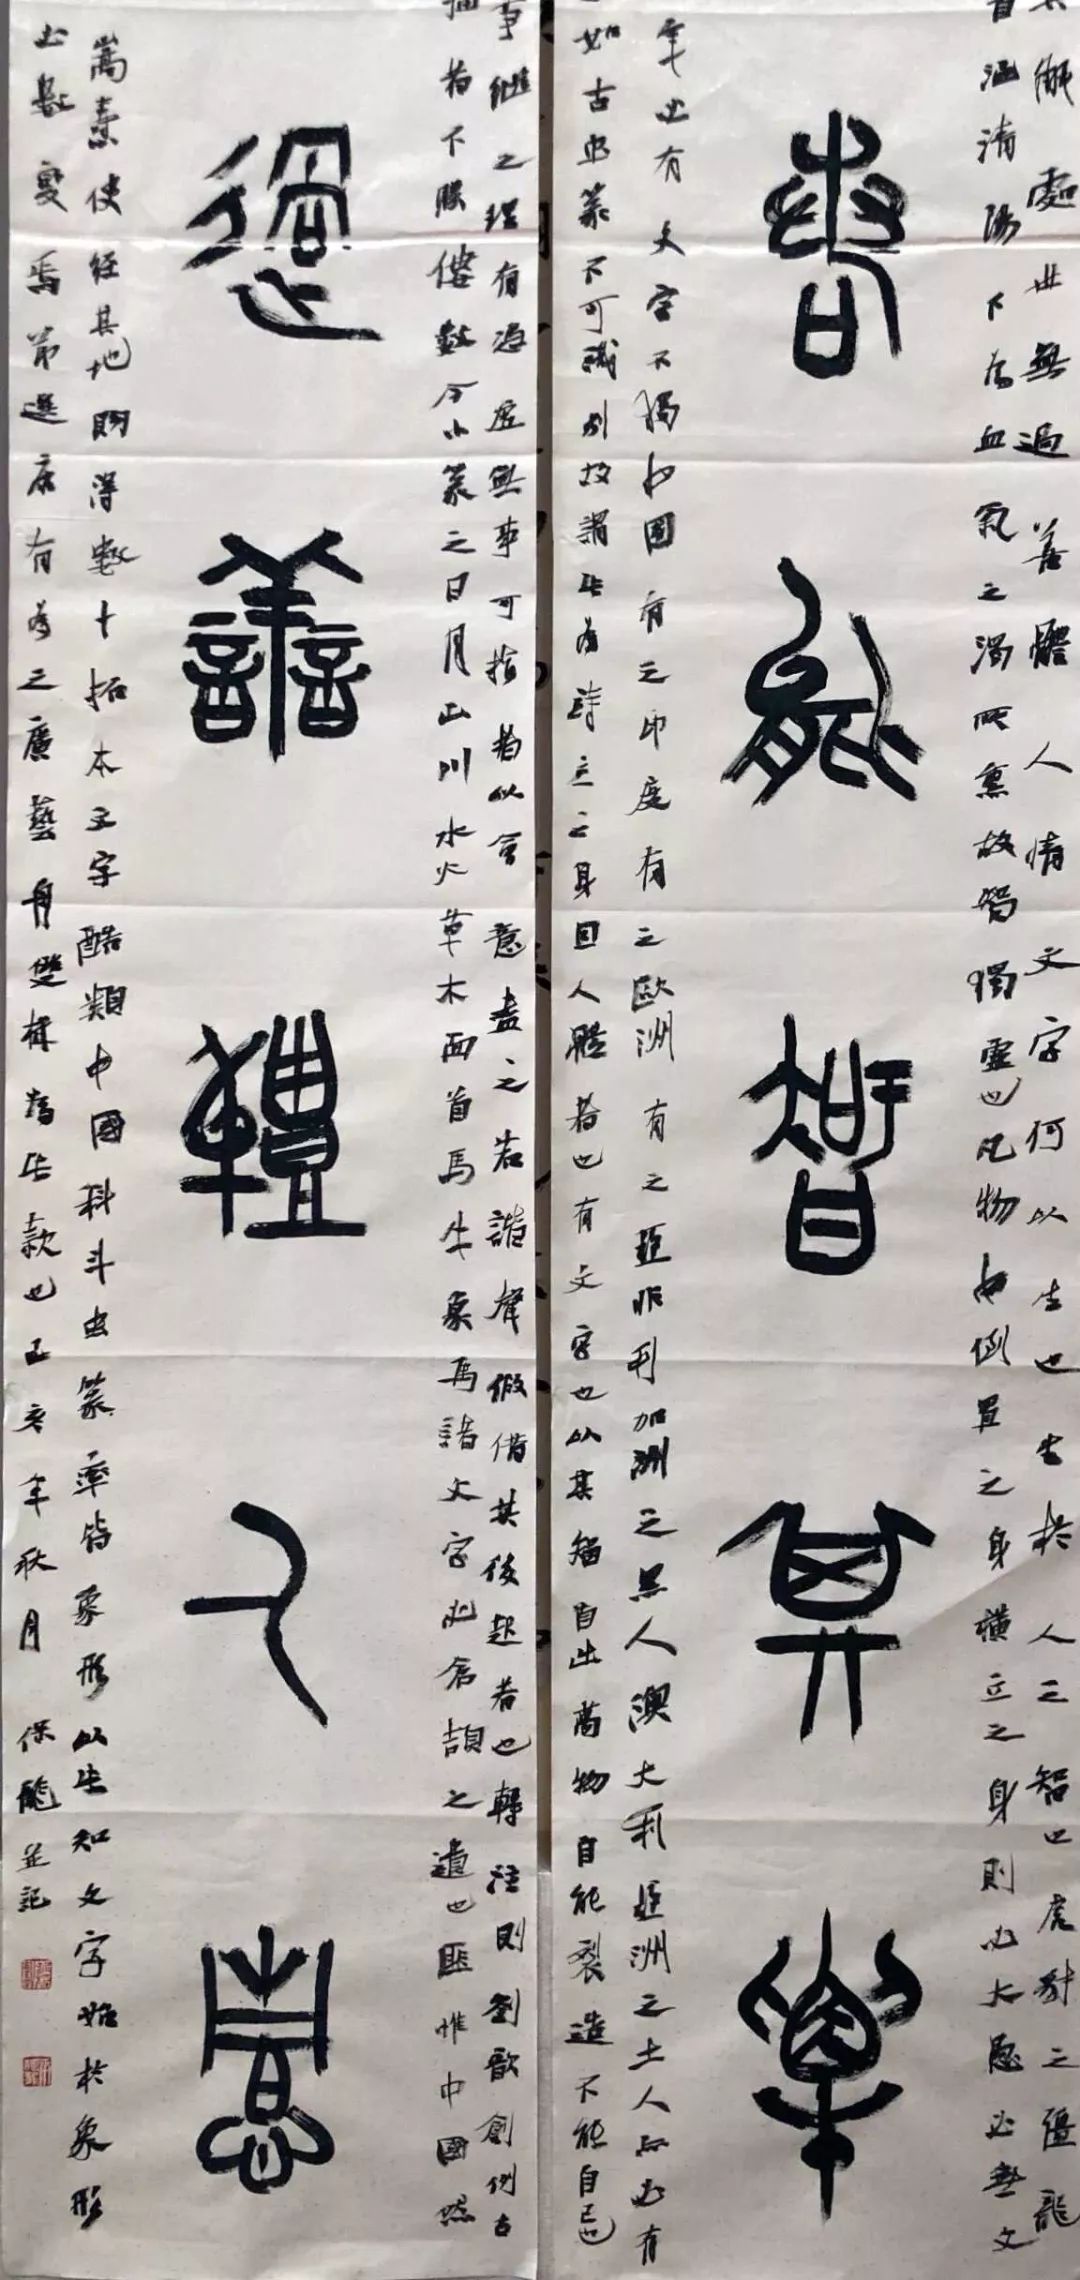 解處世無過善體人情文字何以生也生於人之智也虎豹之彊龍
首涵清陽不為血氣之濁所熏故智獨靈也凡物中倒置之身橫立之身則必大愚必無文
能智其樂
必有文字不獨中國有之印度有之歐洲有之亞非利加洲之黑人澳大利亞洲之土人亦必有
如古虫篆不可識別故謂此為峙立之身曰人體者也有文字也以其智自出萬物自能裂造不能自已也
事繼之理有憑虛無事可指者以會意盡之若諧聲假借其後起者也轉注則劉歆創例古
描者不勝僂數今小篆之日月山川水火草木面首馬牛象馬諸文字必倉頡之遺也匪惟中國然
過善體人
嵩燾使經其地購得數十拓本文字酷類中國科斗虫篆率皆象形以此知文字始於象形
數變焉節選康有為之廣藝舟雙楫為此款也己亥年秋月保龍並記